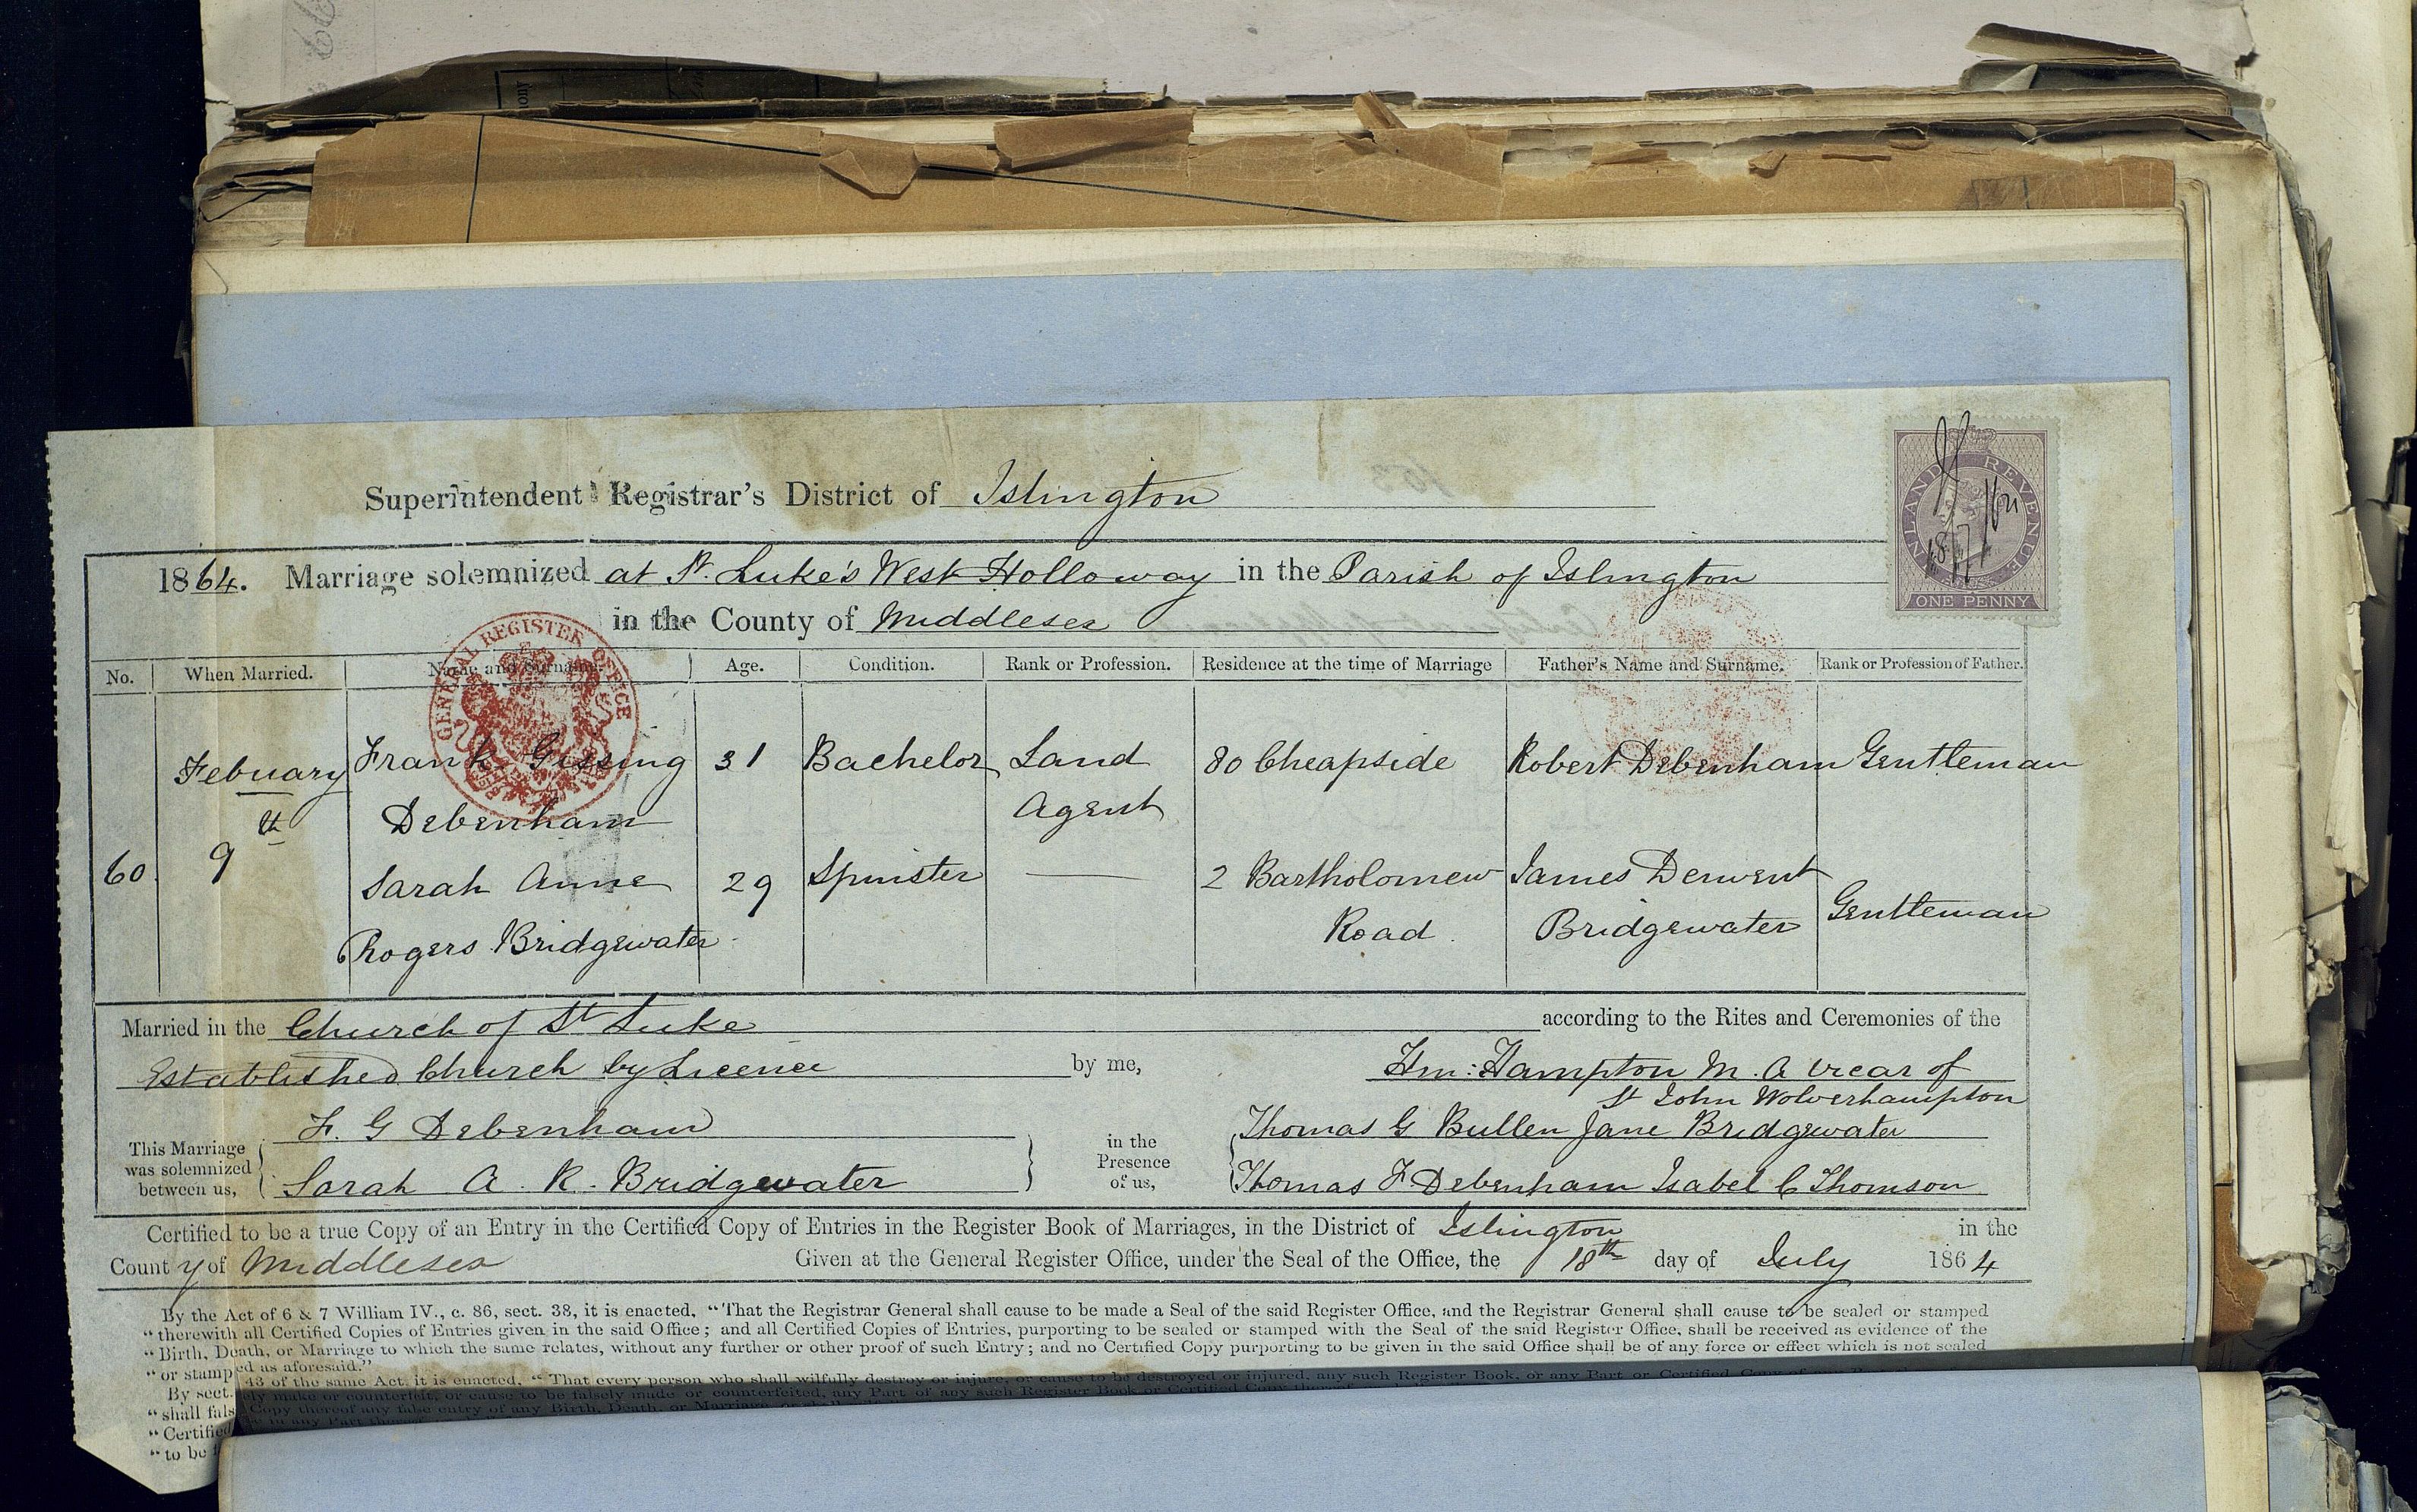 Superintendent Registrar's District of Islington
1864. Marriage solemnized at St. Luke's West Holloway in the Parish of Islington
in the County of Middlesex
No. When Married. Name and Surname. Age. Condition. Rank or Profession. Residence at the time of Marriage Father's Name and Surname. Rank or Profession of Father.
Febuary Frank Gissing 31 Bachelor Land 80 Cheapside Robert Debenham Gentleman
9th Debenham Agent
60. Sarah Anne 29 Spinster — 2 Bartholomew James Derwent Gentleman
Rogers Bridgewater Road. Bridgewater
Married in the Church of St Luke according to the Rites and Ceremonies of the
Established Church by Licence by me, Hampton M.A vicar of
St John Wolverhampton
This Marriage was solemnized between us, F. G Debenham in the Presence of us, Thomas G Bullen Jane Bridgewater
Sarah A. R. Bridgewater Thomas F Debenham Isabel C Thomson
Certified to be a true Copy of an Entry in the Certified Copy of Entries in the Register Book of Marriages, in the District of Islington in the
County of Middlesex Given at the General Register Office, under the Seal of the Office, the 18th day of July 1864
By the Act of 6 & 7 William IV., c. 86, sect. 38, it is enacted, "That the Registrar General shall cause to be made a Seal of the said Register Office, and the Registrar General shall cause to be sealed or stamped
"therewith all Certified Copies of Entries given in the said Office; and all Certified Copies of Entries, purporting to be sealed or stamped with the Seal of the said Register Office, shall be received as evidence of the
"Birth, Death, or Marriage to which the same relates, without any further or other proof of such Entry; and no Certified Copy purporting to be given in the said Office shall be of any force or effect which is not sealed
"or stamped as aforesaid."
By sect. 43 of the same Act, it is enacted, "That every person who shall wilfully destroy or injure, or cause to be destroyed or injured, any such Register Book, or any Part or Certified Copy
"shall fals
"Certified
"to be
GENERAL REGISTER OFFICE
INLAND REVENUE
ONE PENNY